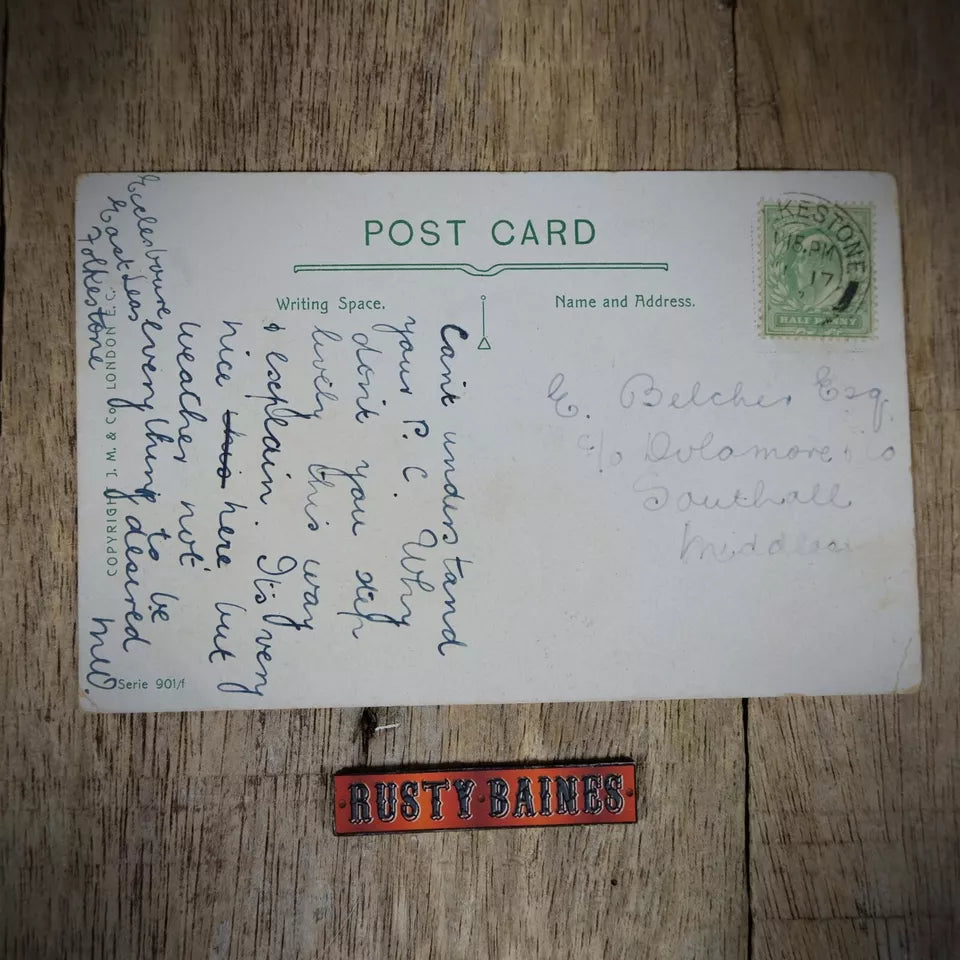 POST CARD
Writing Space.
Name and Address.
KESTONE
15.PM
17
HALF PENNY
Eddesbourne
East Leas
Folkestone
Can't understand
your P. C. Why
don't you skip
lively this way
& explain. It's very
nice this here but
weather not
everything to be
desired
MW.
E. Belcher Esq
c/o & Co
Southall
Middlesex
COPYRIGHT J. M. & Co. LONDON E.C.
Serie 901/f
RUSTY·BAINES